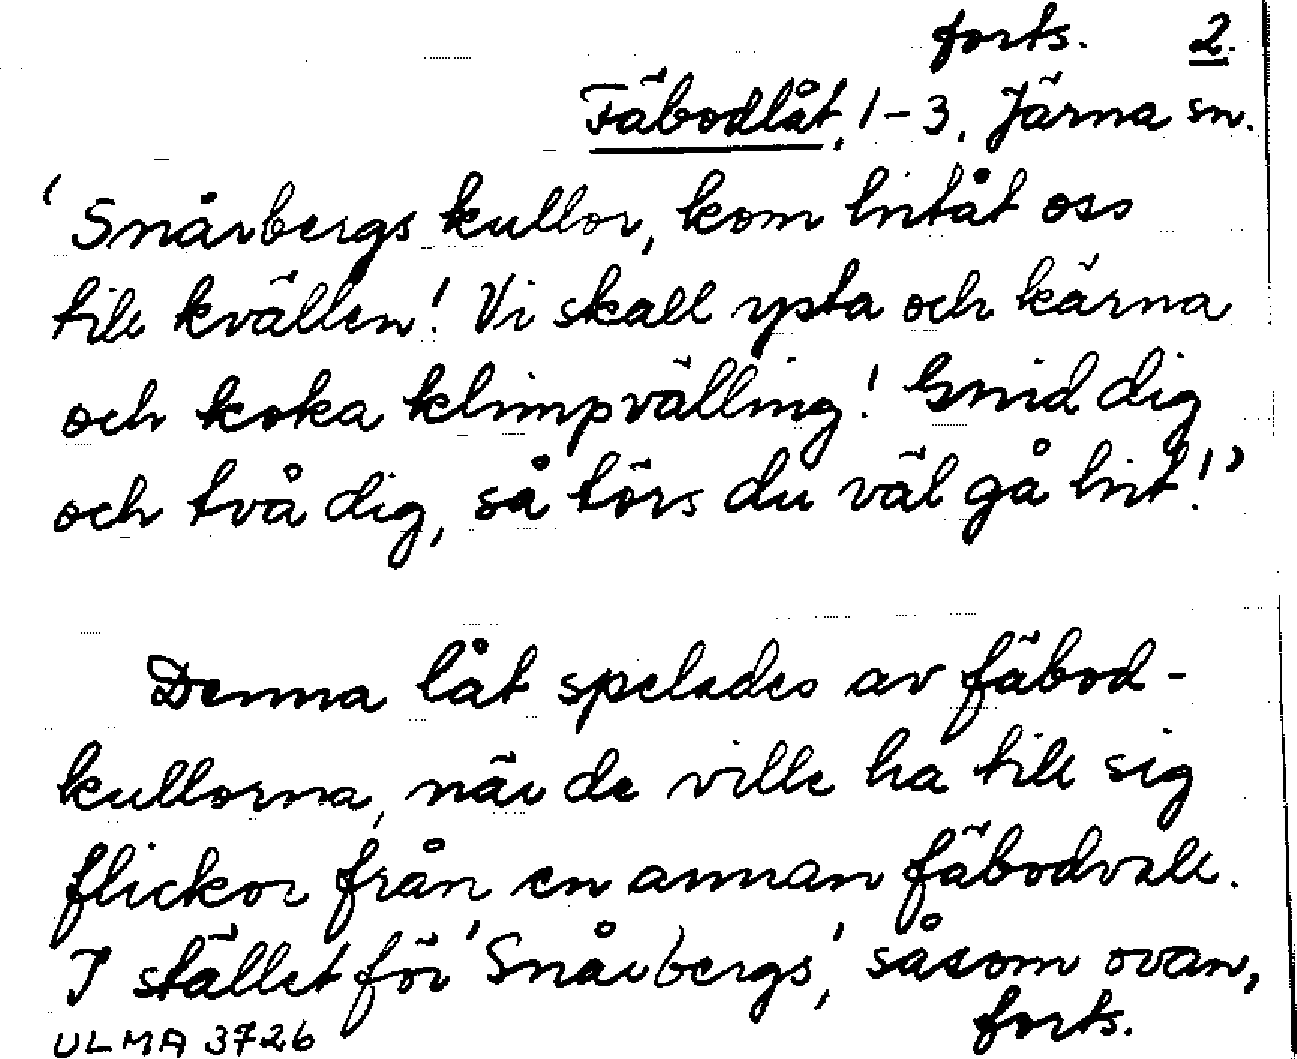 forts. 2.
Fäbodlåt, 1-3. Järna sn.
'Snårbergs kullor, kom hitåt oss
till kvällen! Vi skall ysta och kärna
och koka klimpvälling! Gnid dig
och två dig, så törs du väl gå hit!'
Denna låt spelades av fäbod-
kullorna, när de ville ha till sig
flickor från en annan fäbodvall.
I stället för 'Snårbergs', såsom ovan,
forts.
ULMA 3726